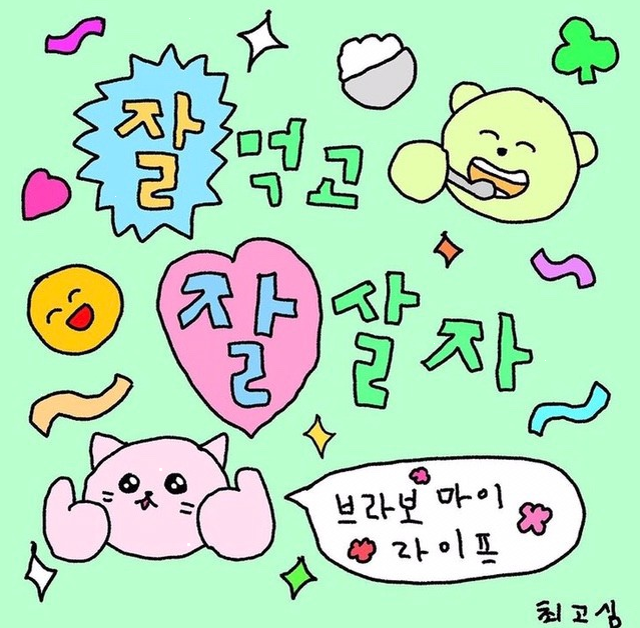 잘 먹고
잘 살자
브라보 마이
라이프
최고심